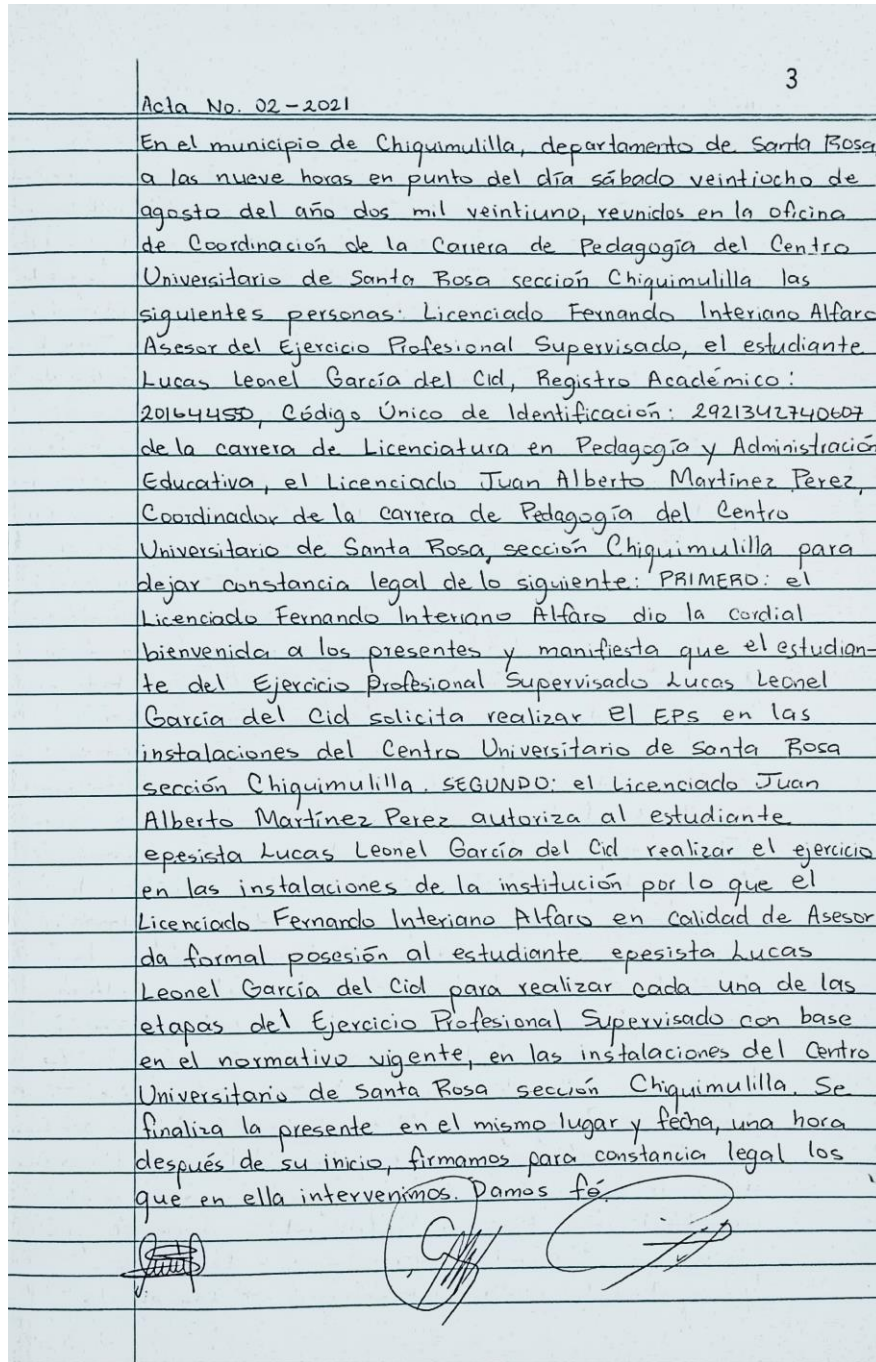 3
Acta No. 02-2021
En el municipio de Chiquimulilla, departamento de Santa Rosa
a las nueve horas en punto del día sábado veintiocho de
agosto del año dos mil veintiuno, reunidos en la oficina
de Coordinación de la Carrera de Pedagogía del Centro
Universitario de Santa Rosa sección Chiquimulilla las
siguientes personas: Licenciado Fernando Interiano Alfaro
Asesor del Ejercicio Profesional Supervisado, el estudiante
Lucas Leonel García del Cid, Registro Académico:
201644550, Código Único de Identificación: 2921342740607
de la carrera de Licenciatura en Pedagogía y Administración
Educativa, el Licenciado Juan Alberto Martínez Perez,
Coordinador de la carrera de Pedagogía del Centro
Universitario de Santa Rosa, sección Chiquimulilla para
dejar constancia legal de lo siguiente: PRIMERO: el
Licenciado Fernando Interiano Alfaro dio la cordial
bienvenida a los presentes y manifiesta que el estudian-
te del Ejercicio Profesional Supervisado Lucas Leonel
García del Cid solicita realizar El EPS en las
instalaciones del Centro Universitario de Santa Rosa
sección Chiquimulilla. SEGUNDO: el Licenciado Juan
Alberto Martínez Perez autoriza al estudiante
epesista Lucas Leonel García del Cid realizar el ejercicio
en las instalaciones de la institución por lo que el
Licenciado Fernando Interiano Alfaro en calidad de Asesor
da formal posesión al estudiante epesista Lucas
Leonel García del Cid para realizar cada una de las
etapas del Ejercicio Profesional Supervisado con base
en el normativo vigente, en las instalaciones del Centro
Universitario de Santa Rosa sección Chiquimulilla. Se
finaliza la presente en el mismo lugar y fecha, una hora
después de su inicio, firmamos para constancia legal los
que en ella intervenimos. Damos fé.